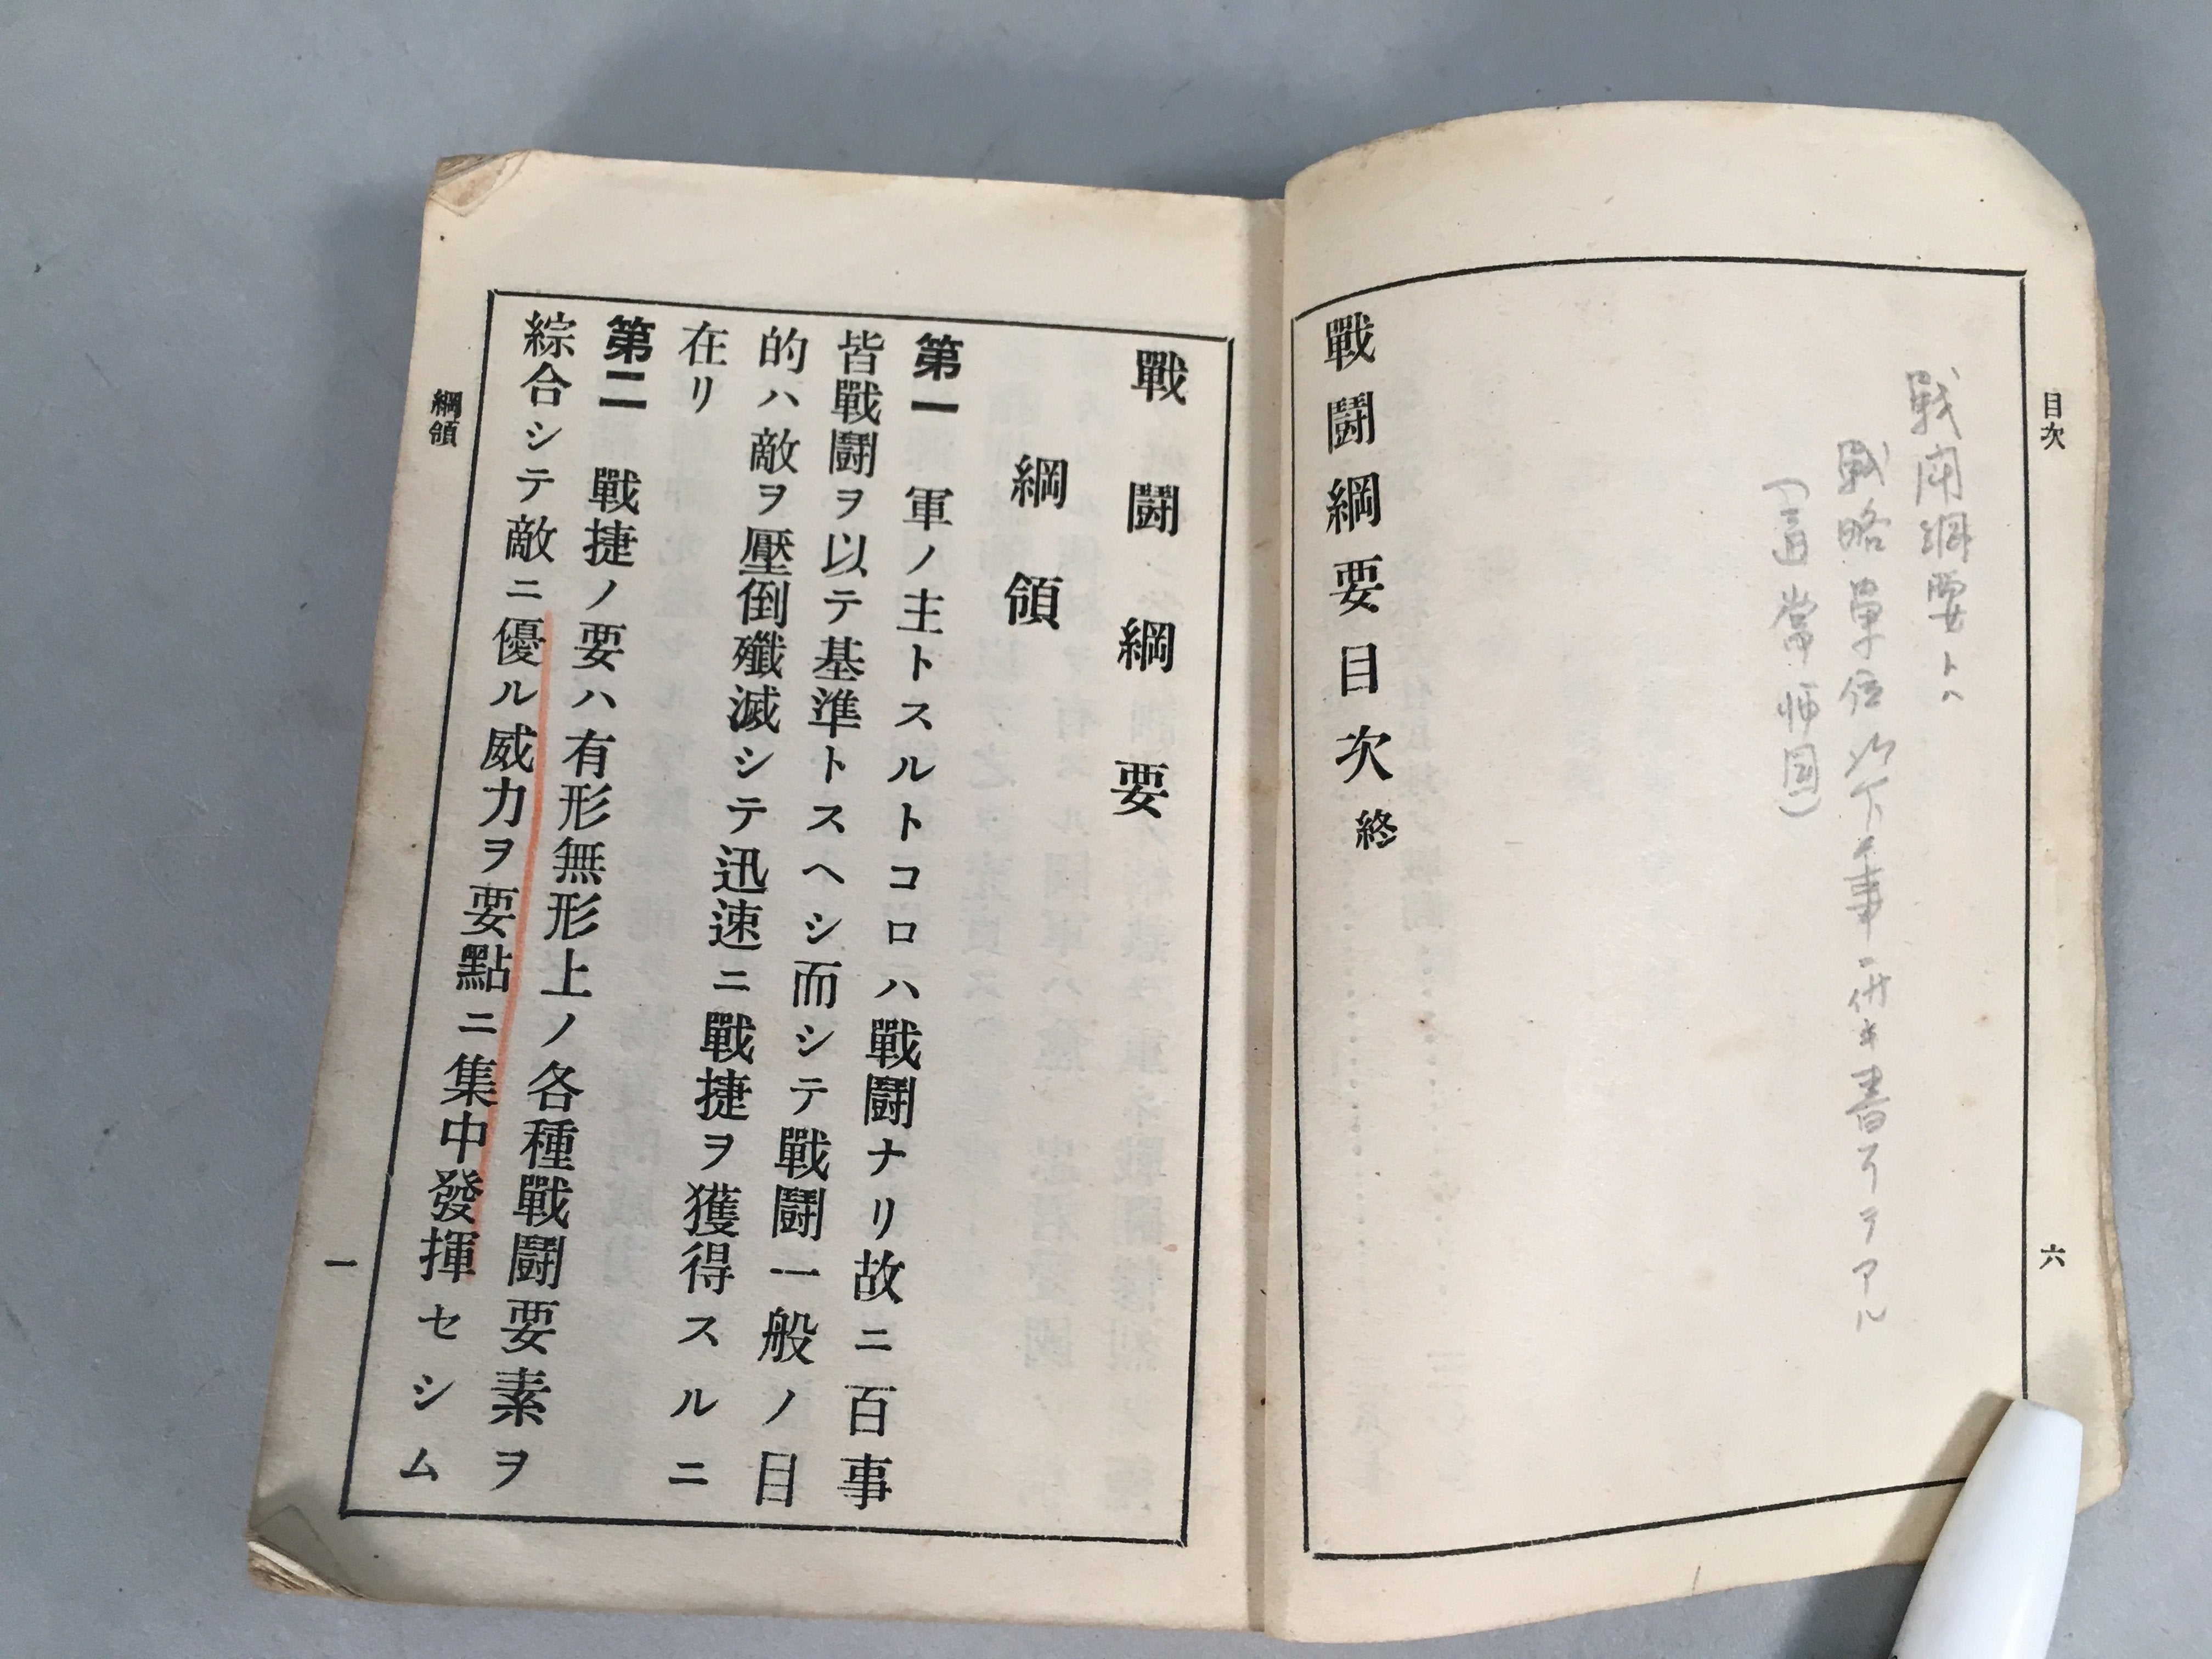 目次
六
戰闘綱要トハ
戰略單位以下ノ事ニ付キ書イテアル
(普通 常師團)
戰鬪綱要目次終
戰鬪綱要
綱領
第一 軍ノ主トスルトコロハ戰鬪ナリ故ニ百事
皆戰鬪ヲ以テ基準トスヘシ而シテ戰鬪一般ノ目
的ハ敵ヲ壓倒殲滅シテ迅速ニ戰捷ヲ獲得スルニ
在リ
第二 戰捷ノ要ハ有形無形上ノ各種戰鬪要素ヲ
綜合シテ敵ニ優ル威力ヲ要點ニ集中發揮セシム
綱領
一